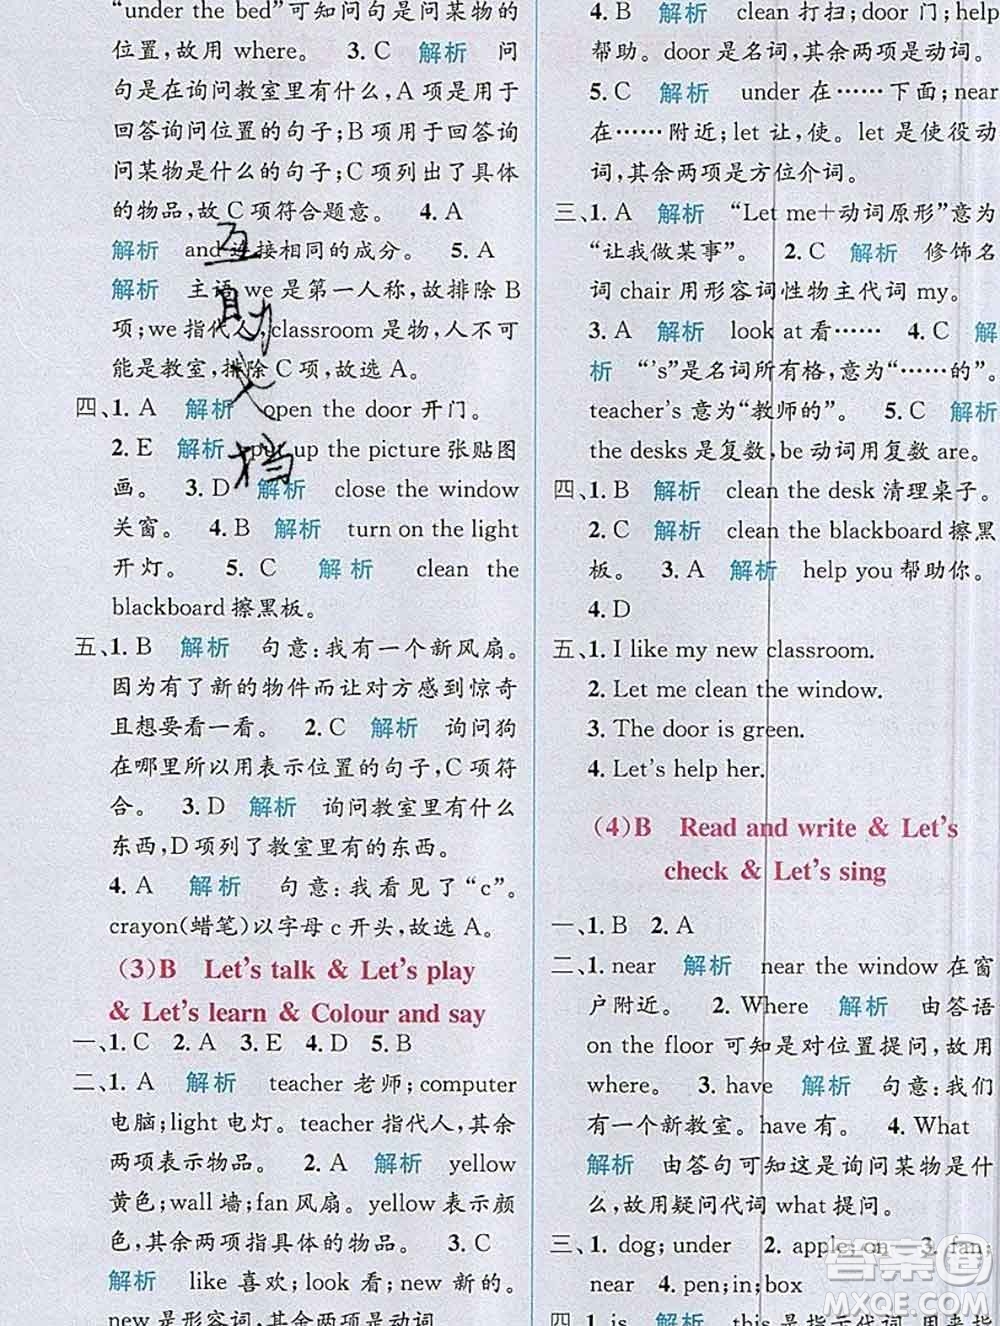 “under the bed”可知问句是问某物的
位置,故用 where。 3. C 解析 问
句是在询问教室里有什么,A 项是用于
回答询问位置的句子;B 项用于回答询
问某物是什么的句子;C 项列出了具体
的物品,故 C 项符合题意。 4. A
解析 and 连接相同的成分。 5. A
解析 主语 we 是第一人称,故排除 B
项;we 指代人,classroom 是物,人不可
能是教室,排除 C 项,故选 A。
四、1. A 解析 open the door 开门。
2. E 解析 put up the picture 张贴图
画。 3. D 解析 close the window
关窗。 4. B 解析 turn on the light
开灯。 5. C 解析 clean the
blackboard 擦黑板。
五、1. B 解析 句意:我有一个新风扇。
因为有了新的物件而让对方感到惊奇
且想要看一看。 2. C 解析 询问狗
在哪里所以用表示位置的句子,C 项符
合。 3. D 解析 询问教室里有什么
东西,D 项列了教室里有的东西。
4. A 解析 句意:我看见了“c”。
crayon(蜡笔)以字母 c 开头,故选 A。
(3)B Let’s talk & Let’s play
& Let’s learn & Colour and say
一、1. C 2. A 3. E 4. D 5. B
二、1. A 解析 teacher 老师;computer
电脑;light 电灯。teacher 指代人,其余
两项表示物品。 2. A 解析 yellow
黄色;wall 墙;fan 风扇。yellow 表示颜
颜色,其余两项指具体的物品。 3. C
解析 like 喜欢;look 看;new 新的。
new 是形容词,其余两项是动词。
4. B 解析 clean 打扫;door 门;help
帮助。door 是名词,其余两项是动词。
5. C 解析 under 在……下面;near
在……附近;let 让,使。let 是使役动
词,其余两项是方位介词。
三、1. A 解析 “Let me+动词原形”意为
“让我做某事”。 2. C 解析 修饰名
词 chair 用形容词性物主代词 my。
3. A 解析 look at 看…… 4. C 解
析 “’s”是名词所有格,意为“……的”。
teacher’s 意为“教师的”。 5. C 解析
the desks 是复数,be 动词用复数 are。
四、1. B 解析 clean the desk 清理桌子。
2. C 解析 clean the blackboard 擦黑
板。 3. A 解析 help you 帮助你。
4. D
五、1. I like my new classroom.
2. Let me clean the window.
3. The door is green.
4. Let’s help her.
(4)B Read and write & Let’s
check & Let’s sing
一、1. B 2. A
二、1. near 解析 near the window 在窗
户附近。 2. Where 解析 由答语
on the floor 可知是对位置提问,故用
where。 3. have 解析 句意:我们
有一个新教室。have 有。 4. What
解析 由答句可知这是询问某物是什
么,故用疑问代词 what 提问。
三、1. dog; under 2. apple; on 3. fan;
near 4. pen; in; box
四、1. is 解析 this 是指示代词,用来指
互
助
文
档
答案圈
MXQE.COM